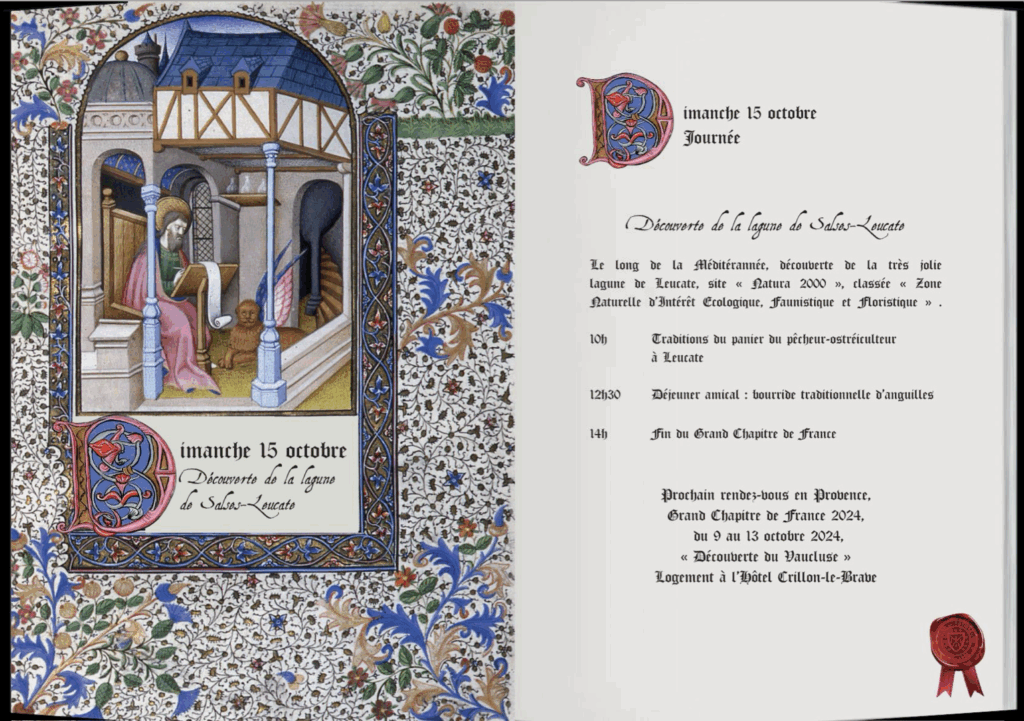 Dimanche 15 octobre
Découverte de la lagune
de Salses-Leucate
Dimanche 15 octobre
Journée
Découverte de la lagune de Salses-Leucate
Le long de la Méditérannée, découverte de la très jolie
lagune de Leucate, site « Natura 2000 », classée « Zone
Naturelle d'Intérêt Ecologique, Faunistique et Floristique » .
10h Traditions du panier du pêcheur-ostréiculteur
à Leucate
12h30 Déjeuner amical : bourride traditionnelle d'anguilles
14h Fin du Grand Chapitre de France
Prochain rendez-vous en Provence,
Grand Chapitre de France 2024,
du 9 au 13 octobre 2024,
« Découverte du Vaucluse »
Logement à l'Hôtel Crillon-le-Brave